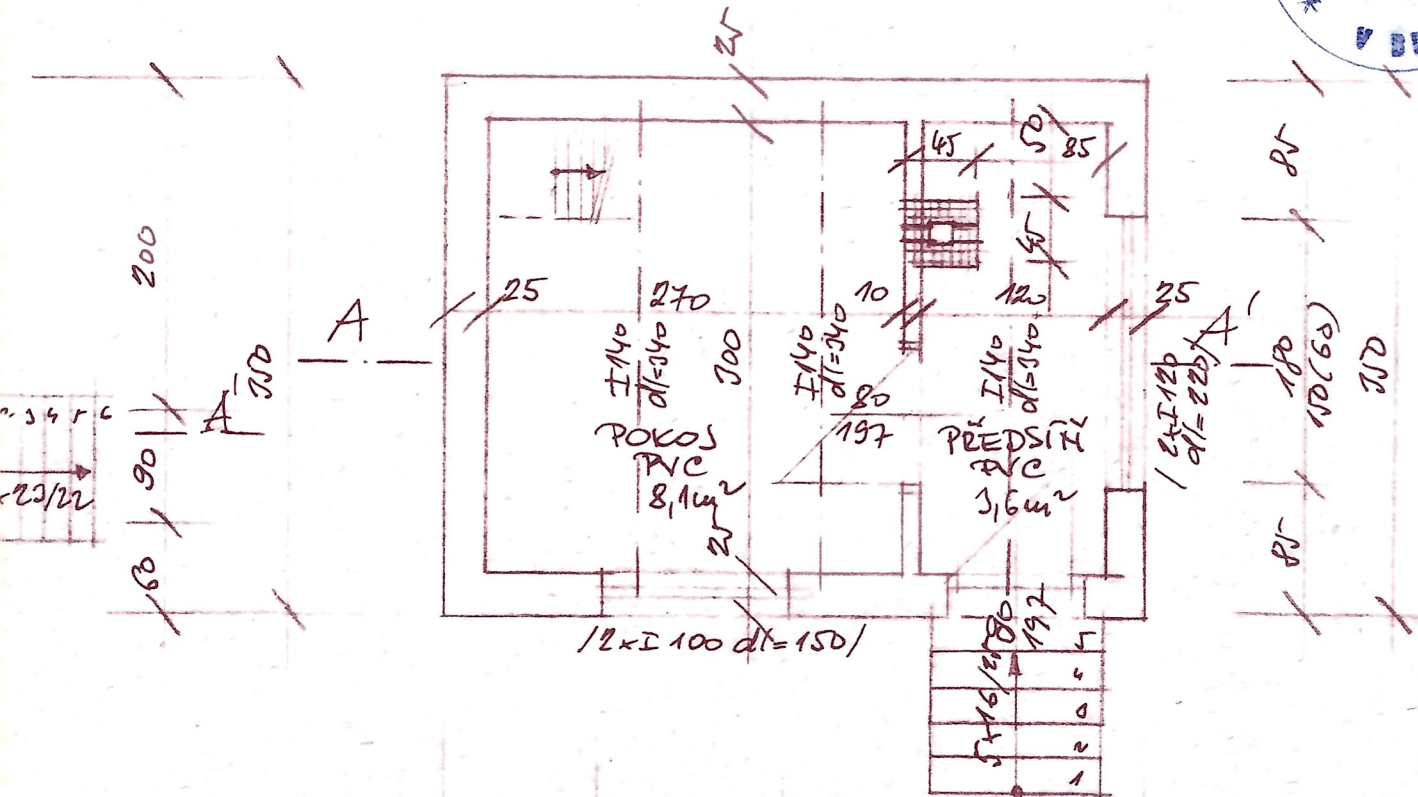 25
45
50
85
85
200
45
25
270
10
120
25
A
A'
350
I140
dl=340
300
I140
dl=340
I140
dl=340
/2xI120
dl=220/
180
150(60)
350
3 4 5 6
A'
80
197
POKOJ
PVC
8,1m²
PŘEDSÍŇ
PVC
3,6m²
90
23/22
25
85
60
/2xI 100 dl=150/
80
197
5
4
3
2
1